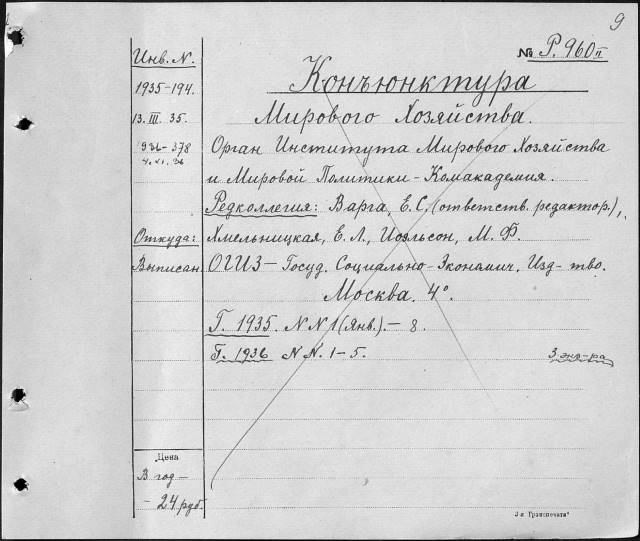 9
№ Р. 960 II
Инв. N.
1935-194.
13. III. 35.
936-378
4. XI. 36
Конъюнктура
Мирового Хозяйства.
Орган Института Мирового Хозяйства
и Мировой Политики - Комакадемия.
Редколлегия: Варга, Е.С, (ответств. редактор.),
Откуда: Хмельницкая, Е. Л., Иоэльсон, М. Ф.
Выписан ОГИЗ - Госуд. Социально-Экономич. Изд-тво.
Москва. 4°.
Г. 1935. NN 1 (Янв.) - 8.
Г. 1936 NN. 1-5.
3 экз-ра
Цена
В год -
- 24 руб.
3-я Транспечати"